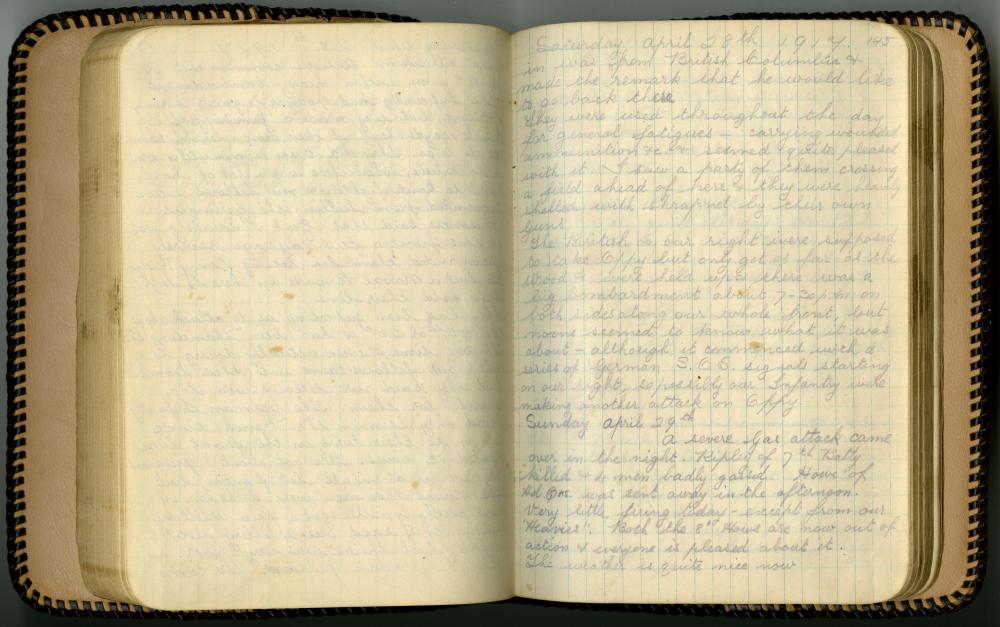 Saturday, April 28th 1917. 145
in was from British Columbia &
made the remark that he would like
to go back there
They were used throughout the day
for general fatigues - carrying wounded
ammunition &c & seemed quite pleased
with it. I saw a party of them crossing
a field ahead of here & they were heavily
shelled with shrapnel by their own
guns
The British on our right were supposed
to take Oppy but only got as far as the
Wood & were held up there was a
big bombardment about 7-30 p.m. on
both sides along our whole front, but
noone seemed to know what it was
about - although it commenced with a
series of German S.O.S. signals starting
on our right, so possibly our Infantry were
making another attack on Oppy
Sunday April 29th
A severe Gas attack came
over in the night. Ripley of 7th Batty
killed & 4 men badly gassed Howe of
Hd Qrs. was sent away in the afternoon.
Very little firing today - except from our
"Heavies". Both the 8" Hows are now out of
action & everyone is pleased about it.
The weather is quite nice now